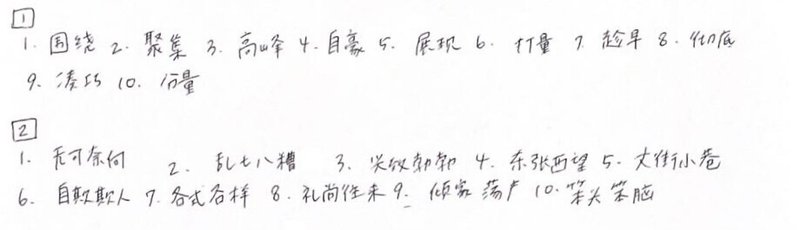 1
1. 围绕 2. 聚集 3. 高峰 4. 自豪 5. 展现 6. 打量 7. 趁早 8. 彻底
9. 凑巧 10. 分量
2
1. 无可奈何 2. 乱七八糟 3. 兴致勃勃 4. 东张西望 5. 大街小巷
6. 自欺欺人 7. 各式各样 8. 礼尚往来 9. 倾家荡产 10. 笨头笨脑